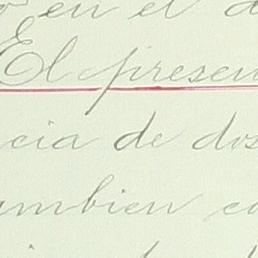 en el
El presen
cia de dos
ambien co